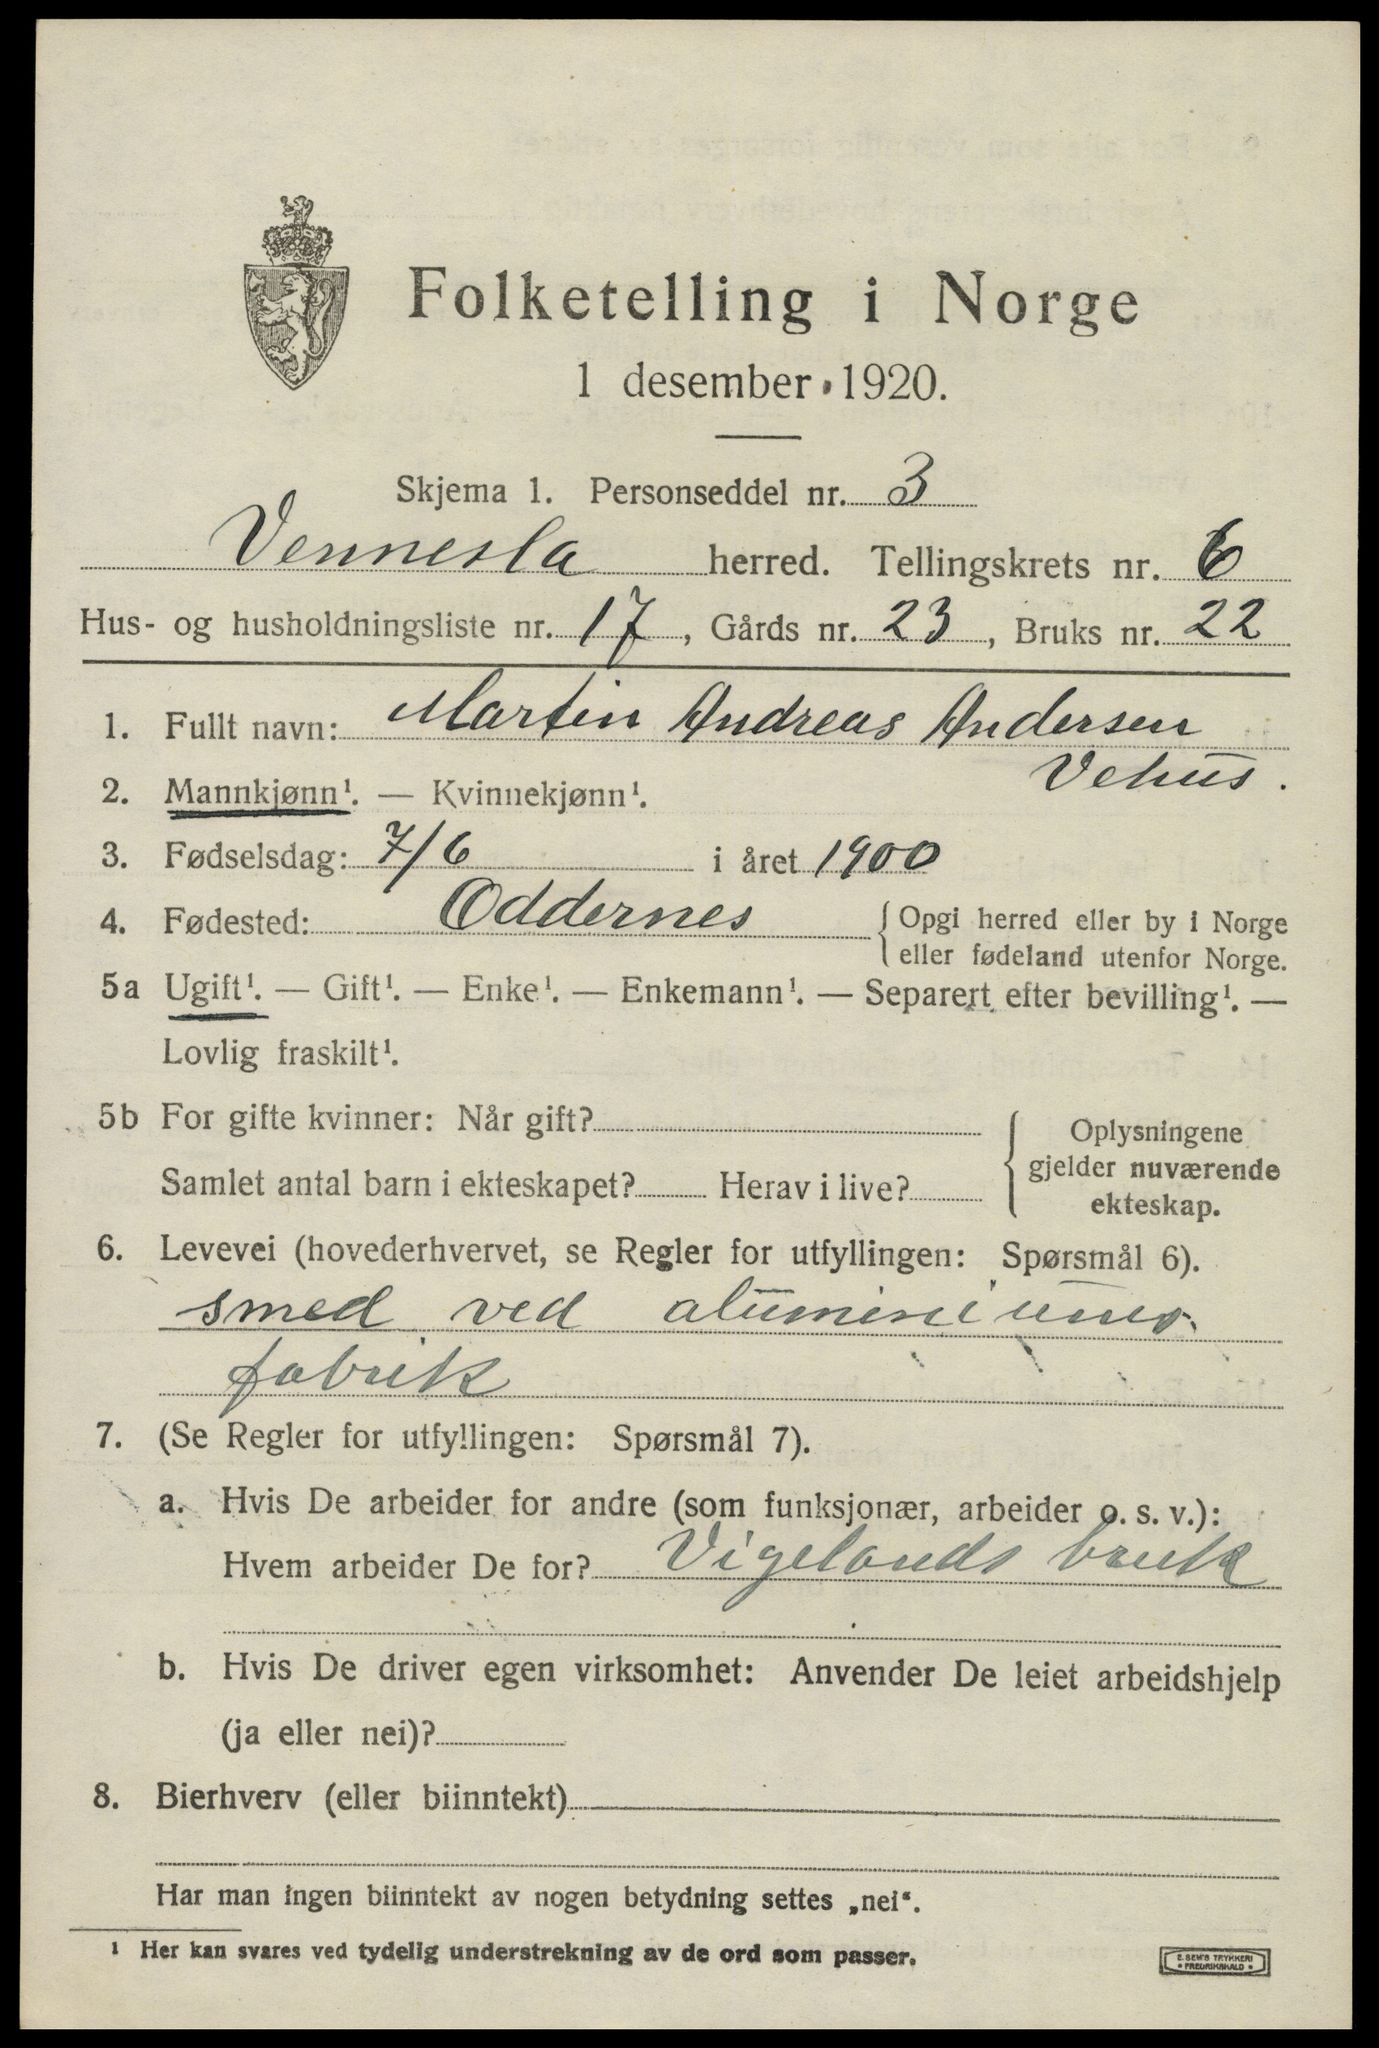 Folketelling i Norge
1 desember 1920.
Skjema 1. Personseddel nr. 3
Vennesla herred. Tellingskrets nr. 6
Hus- og husholdningsliste nr. 17, Gårds nr. 23, Bruks nr. 22
1. Fullt navn: Martin Andreas Andersen
Vehus.
2. Mannkjønn¹. — Kvinnekjønn¹.
3. Fødselsdag: 7/6 i året 1900
4. Fødested: Oddernes { Opgi herred eller by i Norge
eller fødeland utenfor Norge.
5a Ugift¹. — Gift¹. — Enke¹. — Enkemann¹. — Separert efter bevilling¹. —
Lovlig fraskilt¹.
5b For gifte kvinner: Når gift?
Samlet antal barn i ekteskapet? Herav i live?
{ Oplysningene
gjelder nuværende
ekteskap.
6. Levevei (hovederhvervet, se Regler for utfyllingen: Spørsmål 6).
smed ved aluminiums
fabrik
7. (Se Regler for utfyllingen: Spørsmål 7).
a. Hvis De arbeider for andre (som funksjonær, arbeider o. s. v.):
Hvem arbeider De for? Vigelands bruk
b. Hvis De driver egen virksomhet: Anvender De leiet arbeidshjelp
(ja eller nei)?
8. Bierhverv (eller biinntekt)
Har man ingen biinntekt av nogen betydning settes „nei“.
¹ Her kan svares ved tydelig understrekning av de ord som passer.
E. SEM'S TRYKKERI
• FREDRIKSHALD •